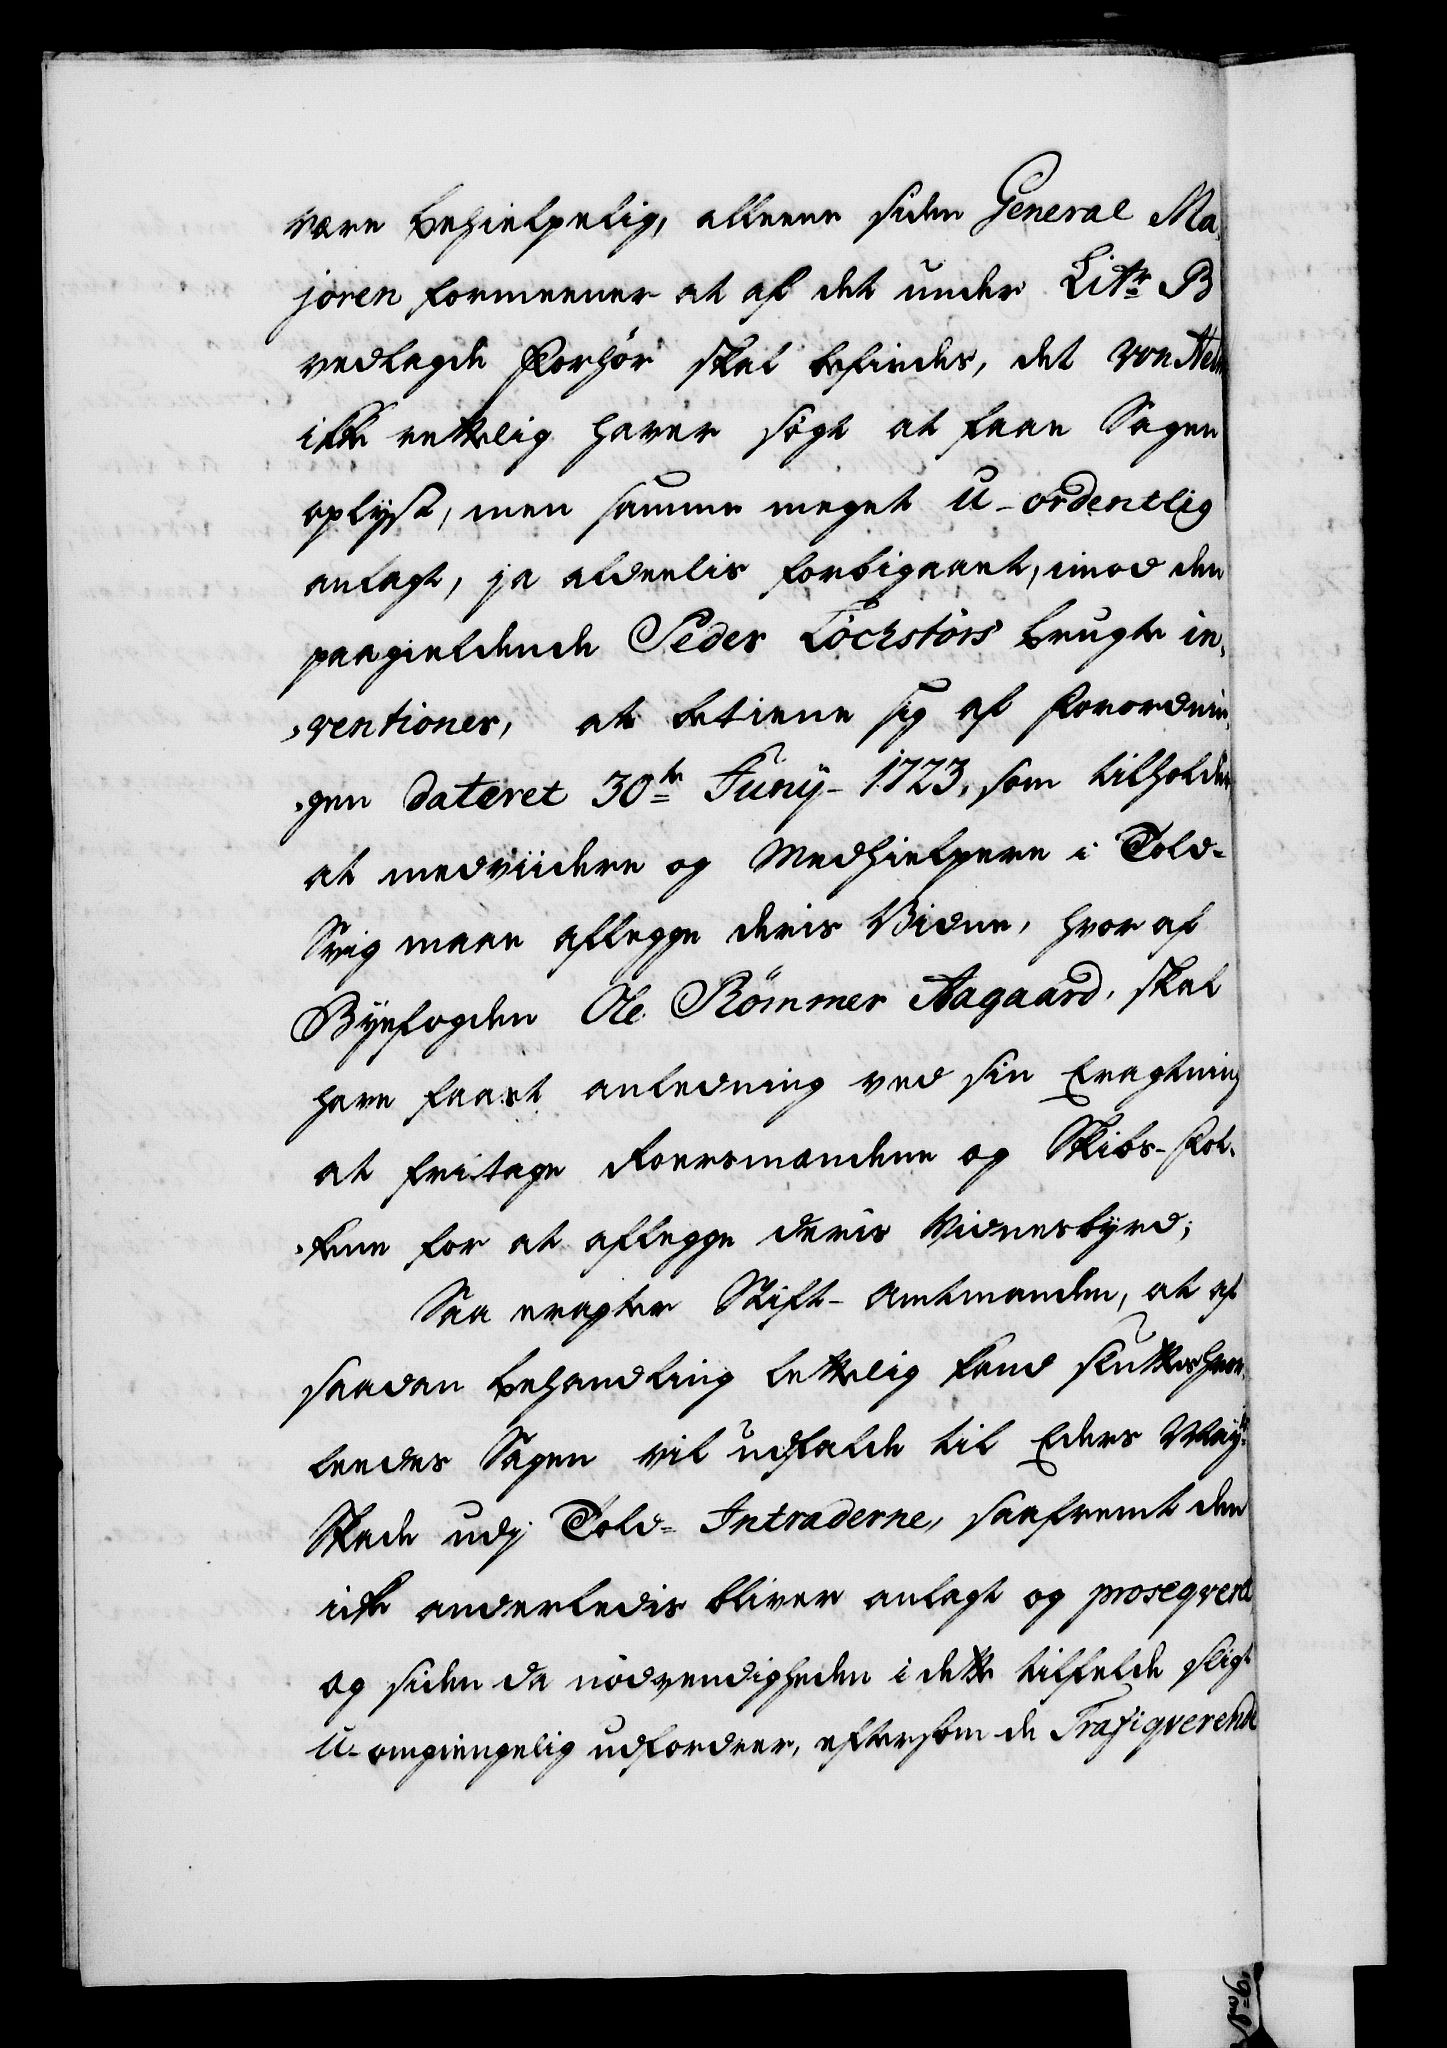 være behielpelig, alleene siden General Ma,
joren formeener at af det under Litr B
vedlagde Forhör skal befindes, det von Aem
ikke rettelig haver sögt at faae Sagen
oplyst, men samme meget U-ordentlig
anlagt, ja aldeelis forbigaaet, imod den
paagieldende Peder Löchstörs brugte in,
,ventioner, at betiene sig af Forordnin,
,gen dateret 30te Junÿ 1723, som tilholder
at medviidere og Medhielpere i Told-
Svig maae aflegge deris Vidne, hvor af
Bÿefogden Ole Römmer Aagaard, skal
have faaet anledning ved sin Eragtning
at fritage Foersmændene og Skibs-Fol,
,kene for at aflegge deris Vidnesbyrd;
Saa eragter Stift-Amtmanden, at af
saadan behandling lettelig kand sluttes hvor
leedes Sagen vil udfalde til Eders Mayts
Skade udj Told-Intraderne, saafremt den
icke anderledis bliver anlagt og proseqveret,
og siden da nödvendigheden i dette tilfelde sligt
U-omgiengelig udfordrer, eftersom de Trafiqverende